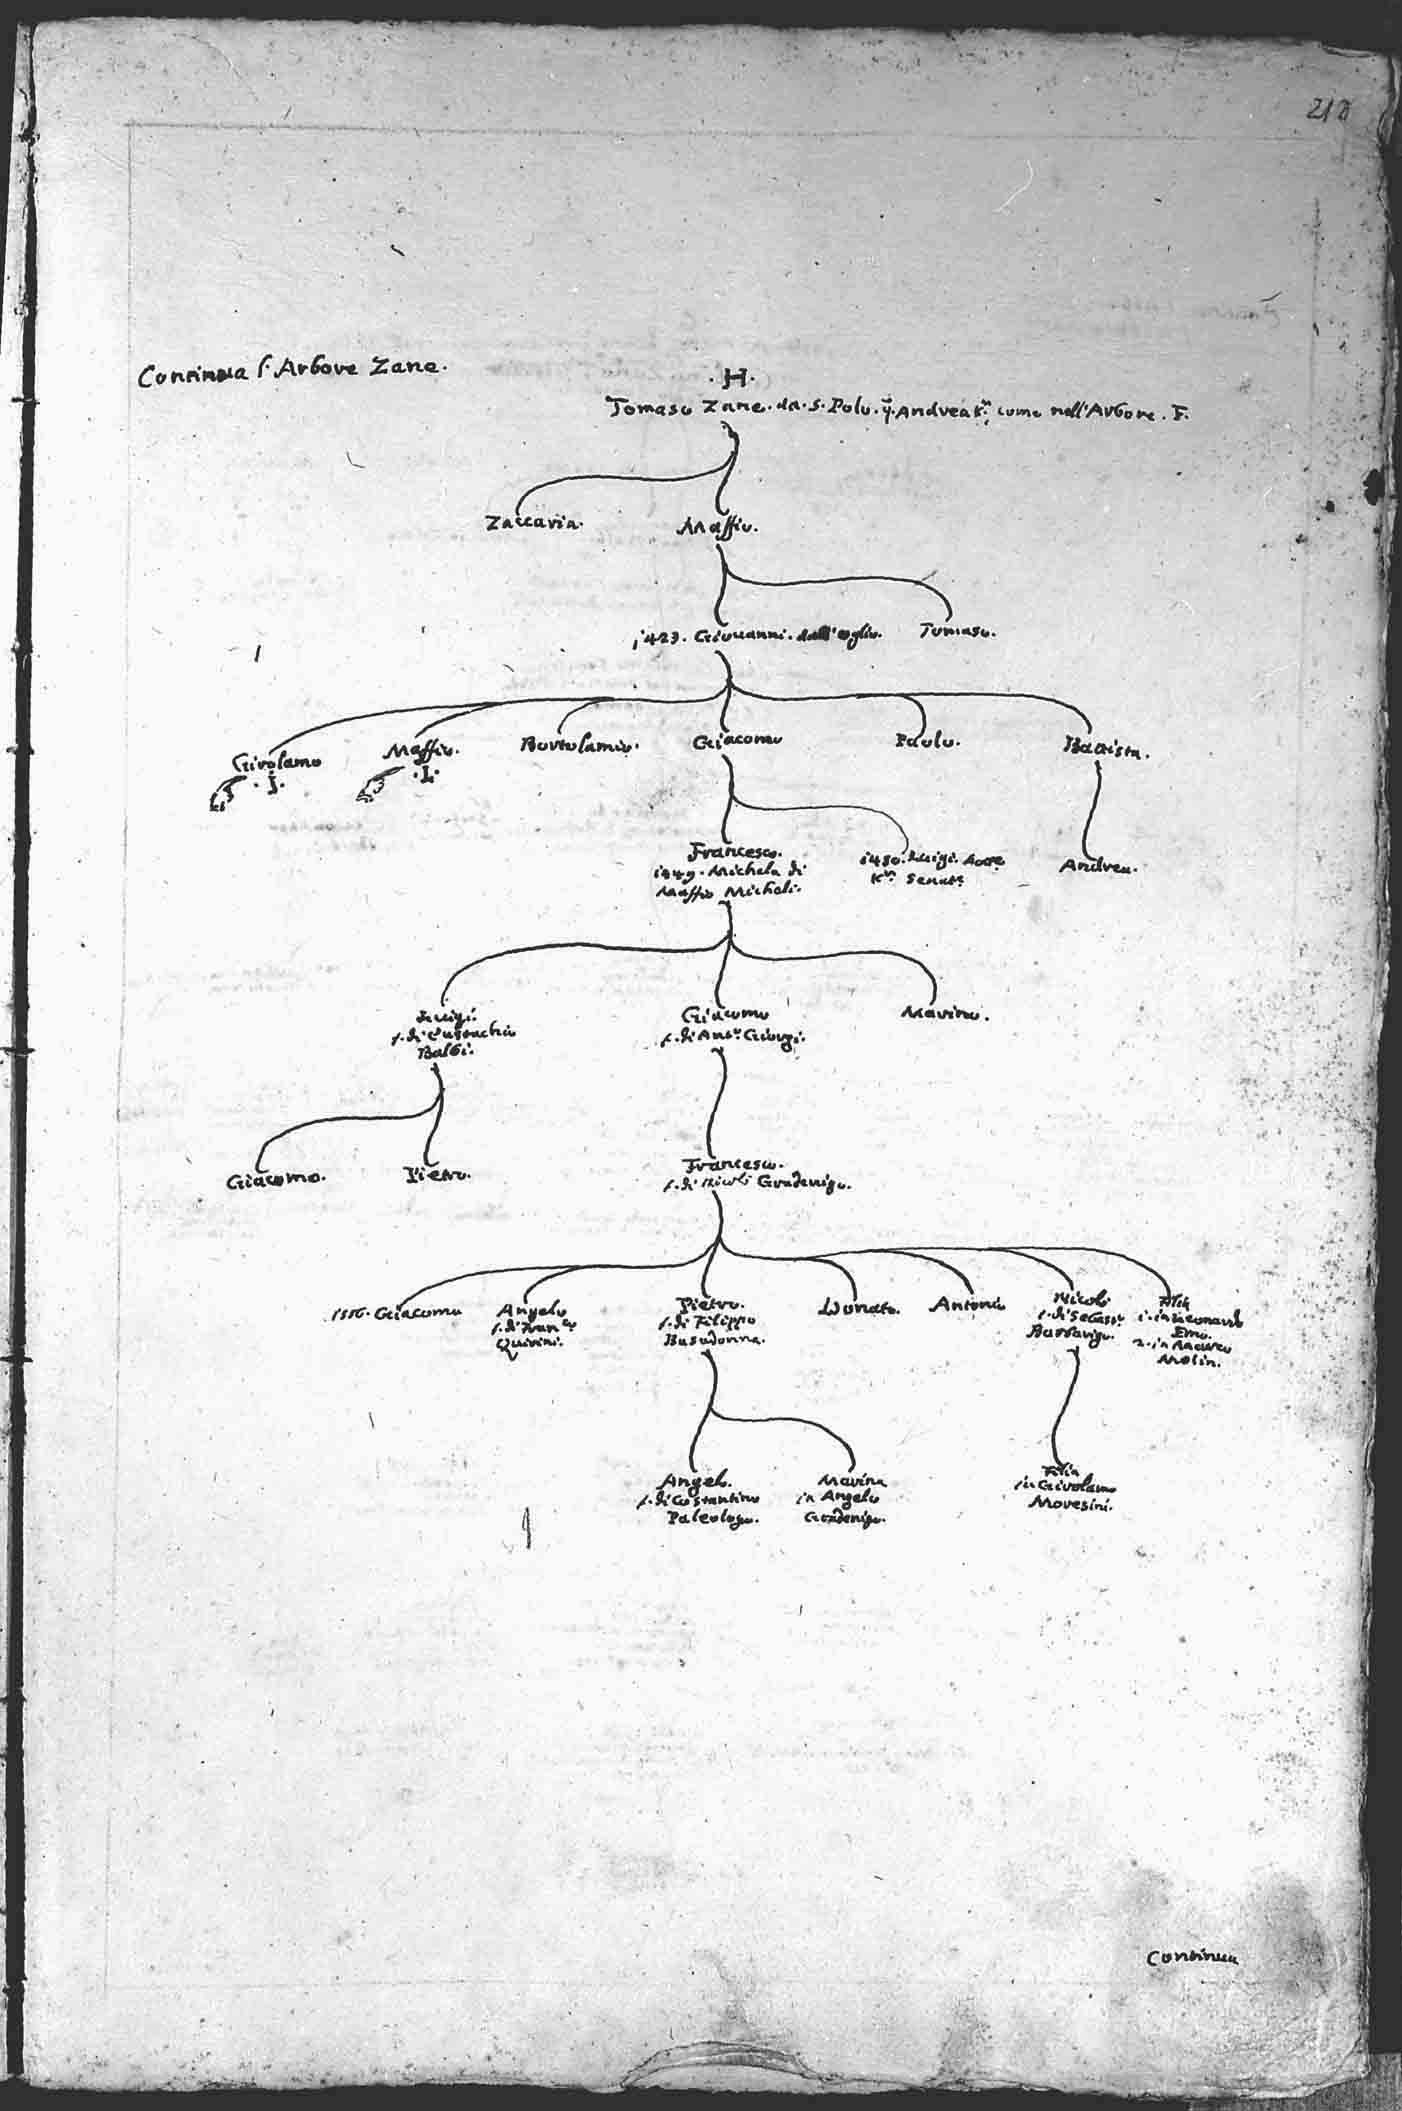 218
Continua l'Arbore Zane.
.H.
Tomaso Zane. da. S. Polo. q. Andrea Kr. como nell'Arbore. F.
Zaccaria. Maffio.
1423. Giouanni. dall'oglio. Tomaso.
Girolamo Maffio. Bortolamio. Giacomo Paolo. Battista.
.I. .L.
Francesco. 1480. Luigi. Kr. Senatr. Andrea.
1449. Michela di
Maffio Micheli.
Luigi. Giacomo Marino.
f. di Eustachio f. di Ant.o Giorgi.
Balbi.
Giacomo. Pietro. Francesco.
f. di Nicolò Gradenigo.
1556. Giacomo Angelo Pietro. Donato. Antonio Nicolò Filia
f. di Franco f. di Filippo f. di Sebast.o 1. in Leonardo
Quirini. Basadonna. Barbarigo. Emo.
2. in Marco
Molin.
Angelo. Marina Filia
f. di Costantino in Angelo in Girolamo
Paleologo. Gradenigo. Moresini.
Continua